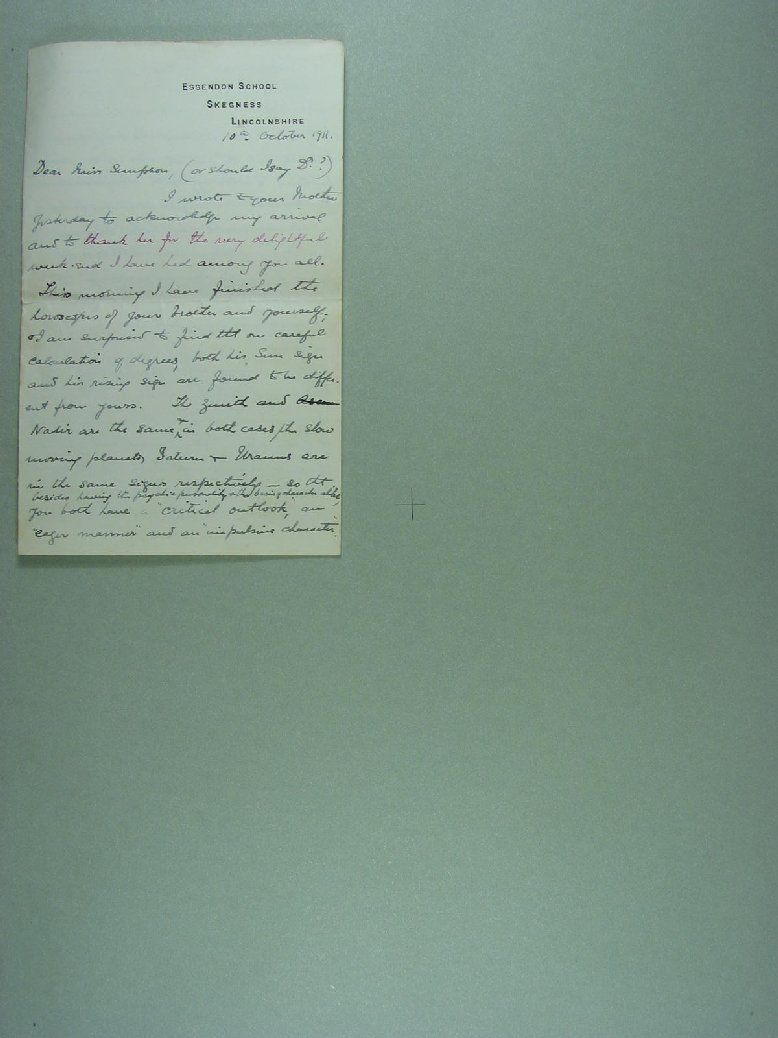 ESSENDON SCHOOL
SKEGNESS
LINCOLNSHIRE
10th October 1911.
Dear Miss Simpson, (or should I say Dr.?)
I wrote to your Mother
yesterday to acknowledge my arrival
and to thank her for the very delightful
week-end I have had among you all.
This morning I have finished the
horoscopes of your brother and yourself;
I am surprised to find tht on careful
calculation of degrees, both his Sun sign
and his rising sign are found to be differ-
ent from yours. The zenith and
Nadir are the same, in both cases, the slow
moving planets, Saturn & Uranus are
in the same signs respectively — so tht
besides having the psychic personality & the being alike,
you both have a "critical outlook", an
"eager manner" and an "impulsive character".